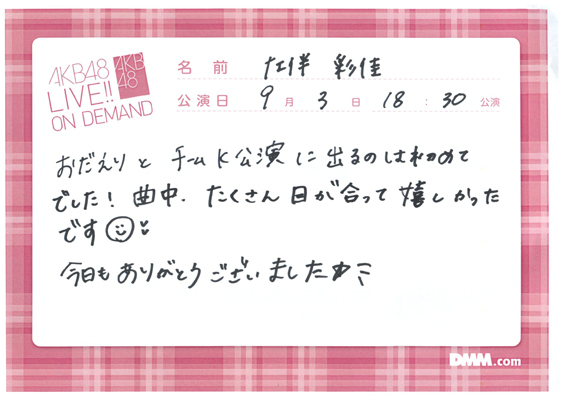 AKB48
LIVE!!
ON DEMAND
AKB
48
名 前 彩佳
公演日 9 月 3 日 18 : 30 公演
おだえりと チームK公演に出るのは初めて
でした! 曲中、たくさん目が合って嬉しかった
です
今日もありがとうございました
DMM.com